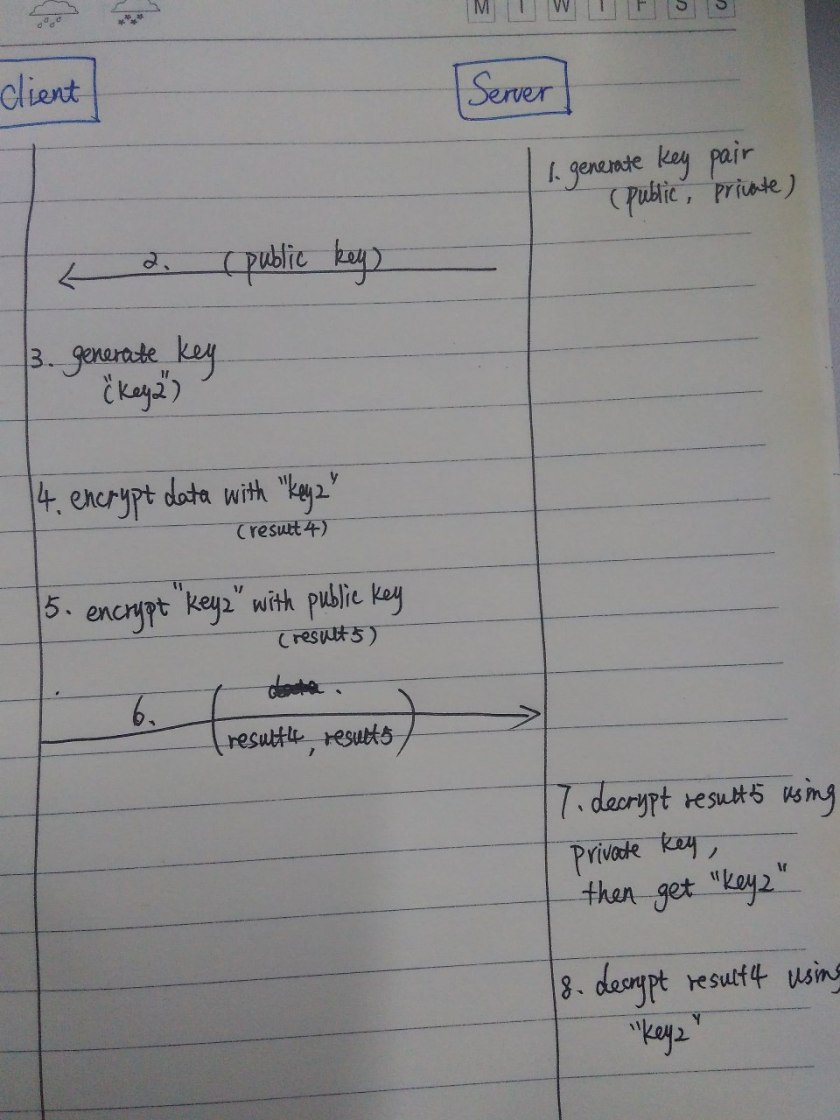 M T W T F S S
Client
Server
1. generate key pair
(public, private)
2. (public key)
3. generate key
("key2")
4. encrypt data with "key2"
(result4)
5. encrypt "key2" with public key
(result5)
6.
data.
(result4, result5)
7. decrypt result5 using
private key,
then get "key2"
8. decrypt result4 using
"key2"